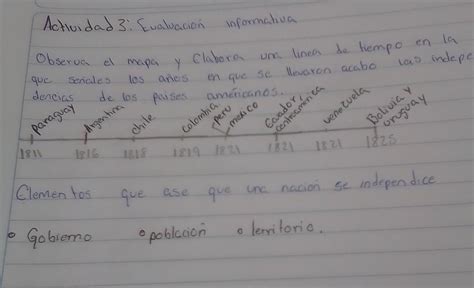 Actividad 3: Evaluación informativa
Observa el mapa y Elabora una linea de tiempo en la
que señales los años en que se llevaron acabo las indepe
dencias de los paises américanos.
Paraguay Argentina chile colombia peru mexico centroamérica venezuela Bolivia y uruguay
1811 1816 1818 1819 1821 1821 1821 1825
Elementos que ase que una nación se independice
• Gobierno • poblacion • territorio.